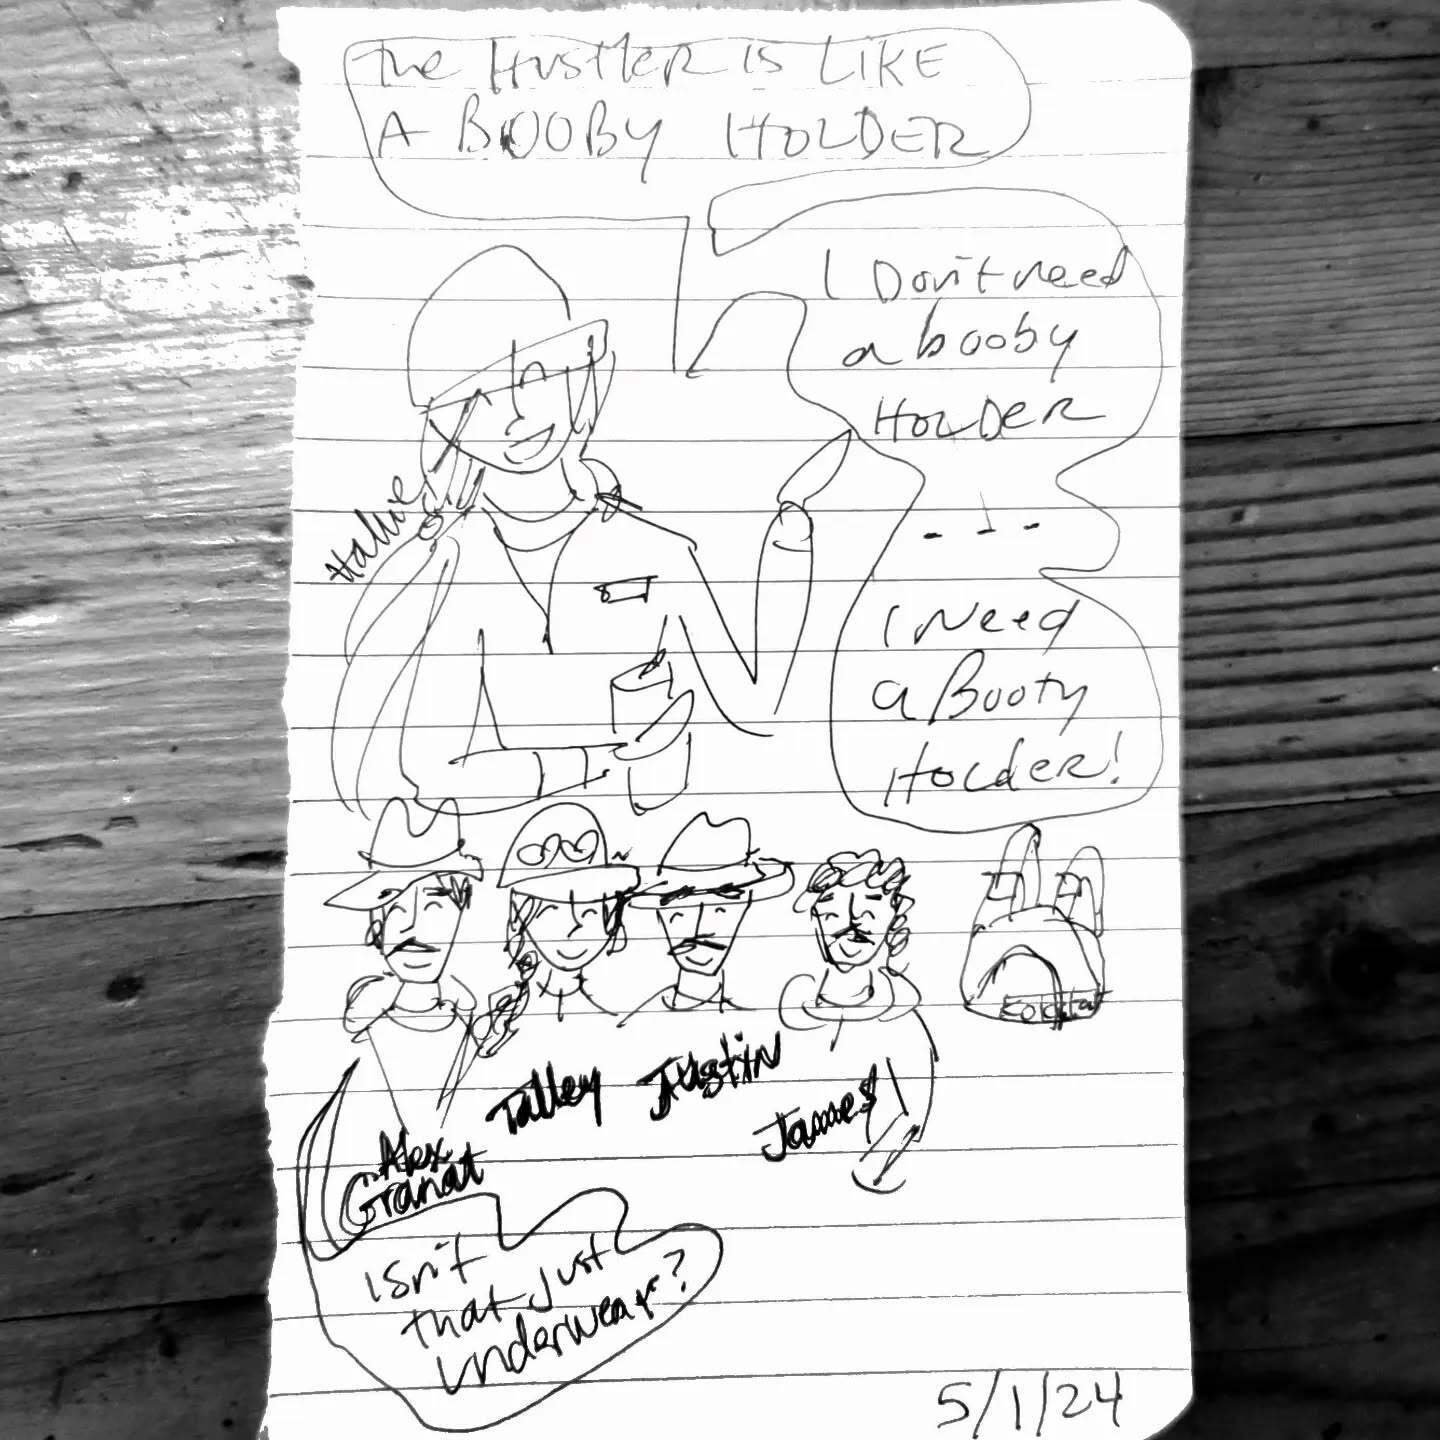 The HUSTLER IS LIKE
A BOOBY HOLDER
I Don't need
a booby
HOLDER
- - -
I Need
a Booty
Holder!
Halvie
Talley
Justin
James
Alex
Granat
Isn't
that just
underwear?
5/1/24